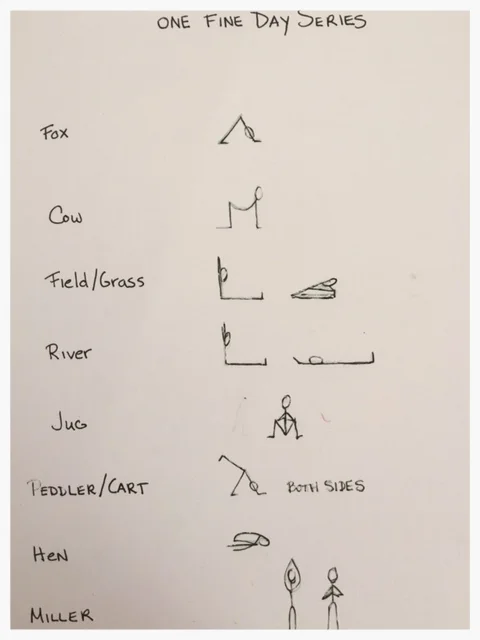 ONE FINE DAY SERIES
Fox
Cow
Field/Grass
River
Jug
PEDDLER/CART BOTH SIDES
HEN
MILLER